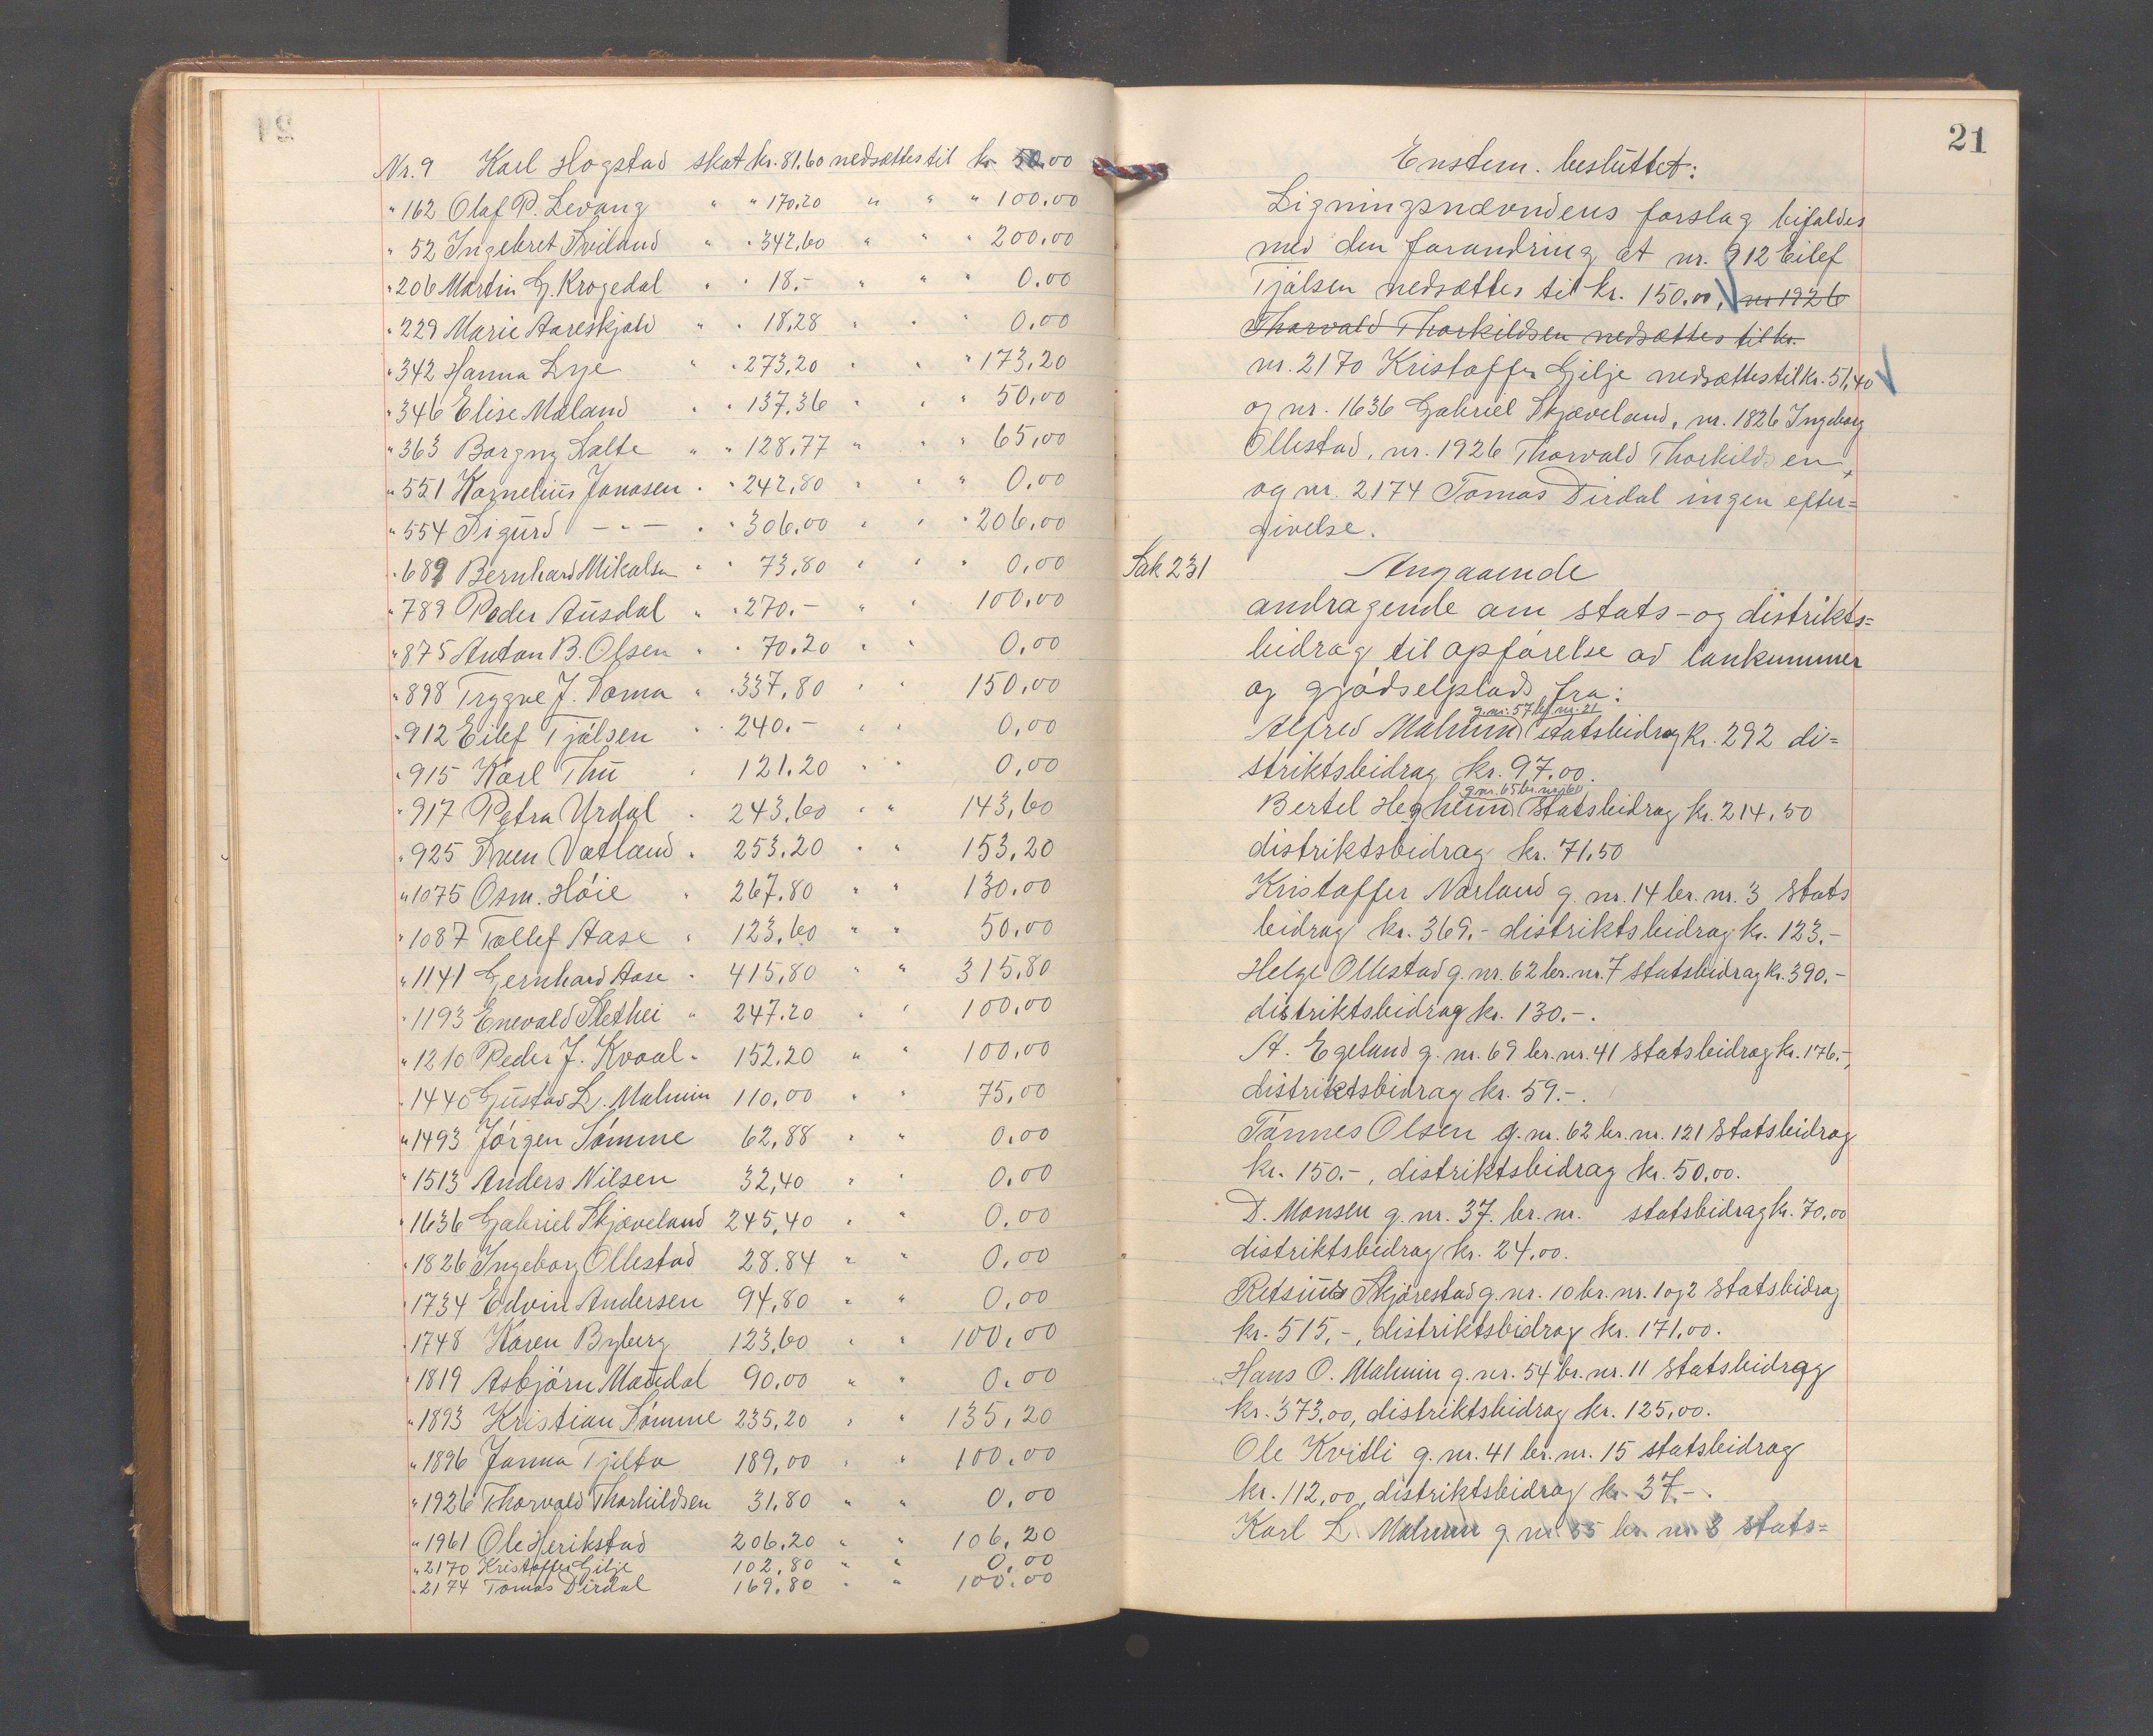 Nr. 9 Karl Hogstad skat kr. 81,60 nedsættes til kr. 50,00
" 162 Olaf P. Levang " " 170,20 " " " 100,00
" 52 Ingebret Sviland " " 342,60 " " " 200,00
" 206 Martin G. Krogedal " " 18.- " " " 0,00
" 229 Marie Aareskjold " " 18,28 " " " 0,00
" 342 Hanna Lye " " 273,20 " " " 173,20
" 346 Elise Maland " " 137,36 " " " 50,00
" 363 Borgny Salte " " 128,77 " " " 65,00
" 551 Kornelius Jonasen " " 242,80 " " " 0,00
" 554 Sigurd — " — " " 306,00 " " " 206,00
" 689 Bernhard Mikalsen " " 73,80 " " " 0,00
" 789 Peder Ausdal " " 270.- " " 100,00
" 875 Anton B. Olsen " " 70,20 " " 0,00
" 898 Trygve J. Soma " " 337,80 " " 150,00
" 912 Eilef Tjálsen " " 240.- " " 0,00
" 915 Karl Thu " 121,20 " " 0,00
" 917 Petra Urdal " 243,60 " " 143,60
" 925 Sven Vatland " 253,20 " " 153,20
" 1075 Osm. Høie " 267,80 " " 130,00
" 1087 Tollef Aase " 123,60 " " 50,00
" 1141 Gernhard Aase " 415,80 " " 315,80
" 1193 Enevald Slethei " 247,20 " " 100,00
" 1210 Peder J. Kvaal " 152,20 " " 100,00
" 1440 Gustav L. Malmin 110,00 " " 75,00
" 1493 Jørgen Sømme 62,88 " " 0,00
" 1513 Anders Nilsen 32,40 " " 0,00
" 1636 Gabriel Skjæveland 245,40 " " 0,00
" 1826 Ingeborg Ollestad 28.84 " " 0,00
" 1734 Edvin Andersen 94,80 " " 0,00
" 1748 Karen Byberg 123,60 " " 100,00
" 1819 Asbjørn Maudal 90,00 " " 0,00
" 1893 Kristian Sømme 235,20 " " 135,20
" 1896 Janna Tjelta 189,00 " " 100,00
" 1926 Thorvald Thorkildsen 31,80 " " 0,00
" 1961 Ole Herikstad 206,20 " " 106,20
" 2170 Kristoffer Gilje 102,80 " " 0,00
" 2174 Tomas Dirdal 169,80 " " 100,00
21
Enstem. besluttet:
Ligningsnævndens forslag bifaldes
med den forandring at nr. 912 Eilef
Tjálsen nedsættes til kr. 150,00, nr 1926
Thorvald Thorkildsen nedsættes til kr.
nr. 2170 Kristoffer Gilje nedsættes til kr. 51,40
og nr. 1636 Gabriel Skjæveland, nr. 1826 Ingeborg
Ollestad, nr. 1926 Thorvald Thorkildsen
og nr. 2174 Tomas Dirdal ingen efter=
givelse.
Sak 231 Angaaende
andragende om stats- og distrikts=
bidrag til opførelse av lankummer
og gjødselplads fra:
g.nr. 57 br. nr. 21
Alfred Malmin statsbidrag kr. 292 di=
striktsbidrag kr. 97,00.
g.nr. 65 br. nr. 60
Bertel Hegheim statsbidrag kr. 214,50
distriktsbidrag kr. 71,50
Kristoffer Norland g. nr. 14 br. nr. 3 stats
bidrag kr. 369.- distriktsbidrag kr. 123.-
Helge Ollestad g. nr. 62 br. nr. 7 statsbidrag kr. 390.-
distriktsbidrag kr. 130.-.
A. Egeland g. nr. 69 br. nr. 41 statsbidrag kr. 176.-,
distriktsbidrag kr. 59.-.
Tønnes Olsen g. nr. 62 br. nr. 121 statsbidrag
kr. 150.-, distriktsbidrag kr. 50,00.
D. Monsen g. nr. 37. br. nr. statsbidrag kr. 70,00
distriktsbidrag kr. 24,00.
Retsius Skjørestad g. nr. 10 br. nr. 1 og 2 statsbidrag
kr. 515,-, distriktsbidrag kr. 171,00.
Hans O. Malmin g. nr. 54 br. nr. 11 statsbidrag
kr. 373,00, distriktsbidrag kr. 125,00.
Ole Kvitli g. nr. 41 br. nr. 15 statsbidrag
kr. 112,00, distriktsbidrag kr. 37.-.
Karl L. Malmin g. nr. 55 br. nr. 3 stats=